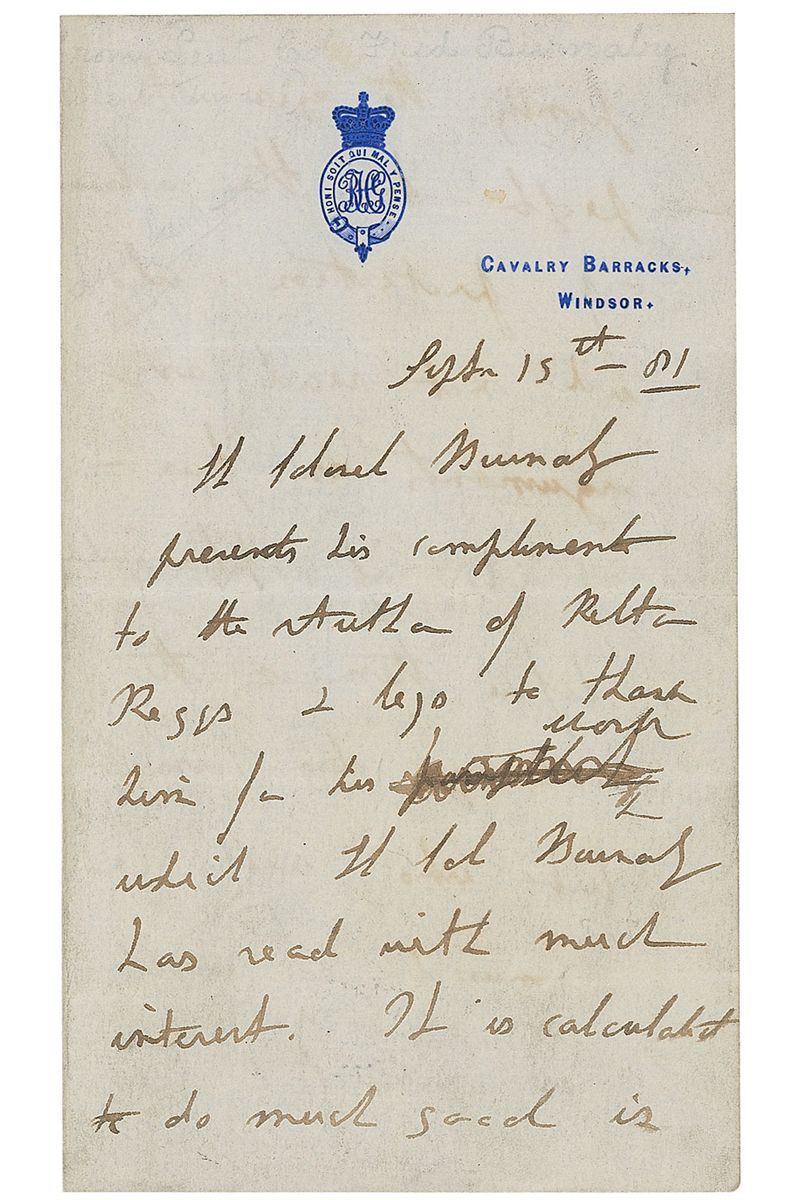 HONI SOIT QUI MAL Y PENSE
RHG
CAVALRY BARRACKS,
WINDSOR.
Septr 15th - 81
Lt Colonel Burnaby
presents his compliments
to the Author of
& begs to thank
work
him for his
which Lt Col Burnaby
has read with much
interest. It is calculated
to do much good in